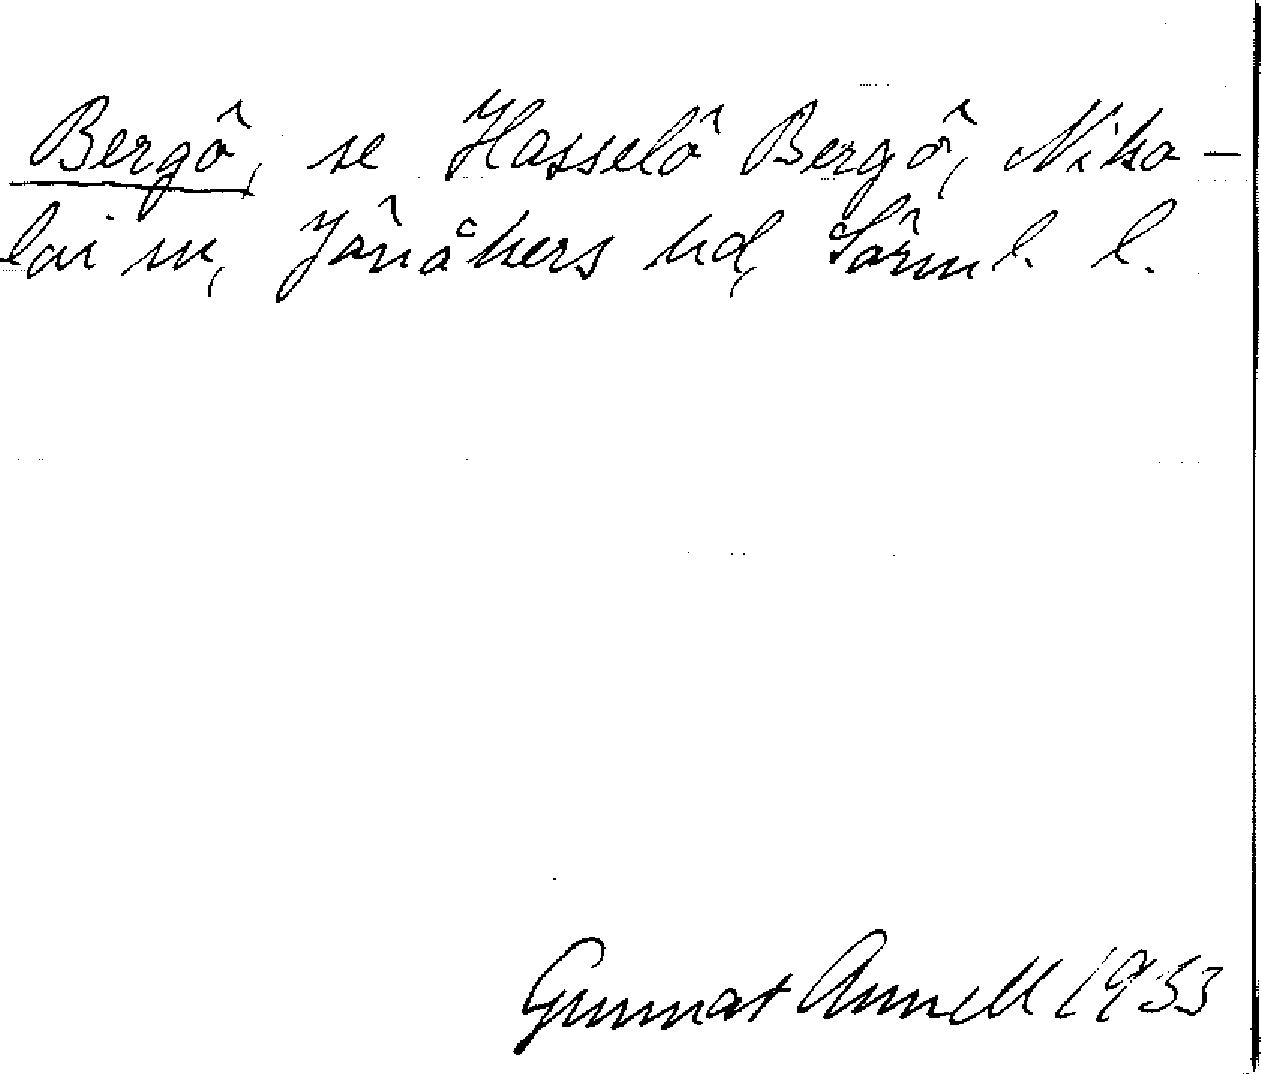 Bergö, se Hasselö Bergö, Niko-
lai sn, Jönåkers hd, Sörml. l.
Gunnar Annell 1933